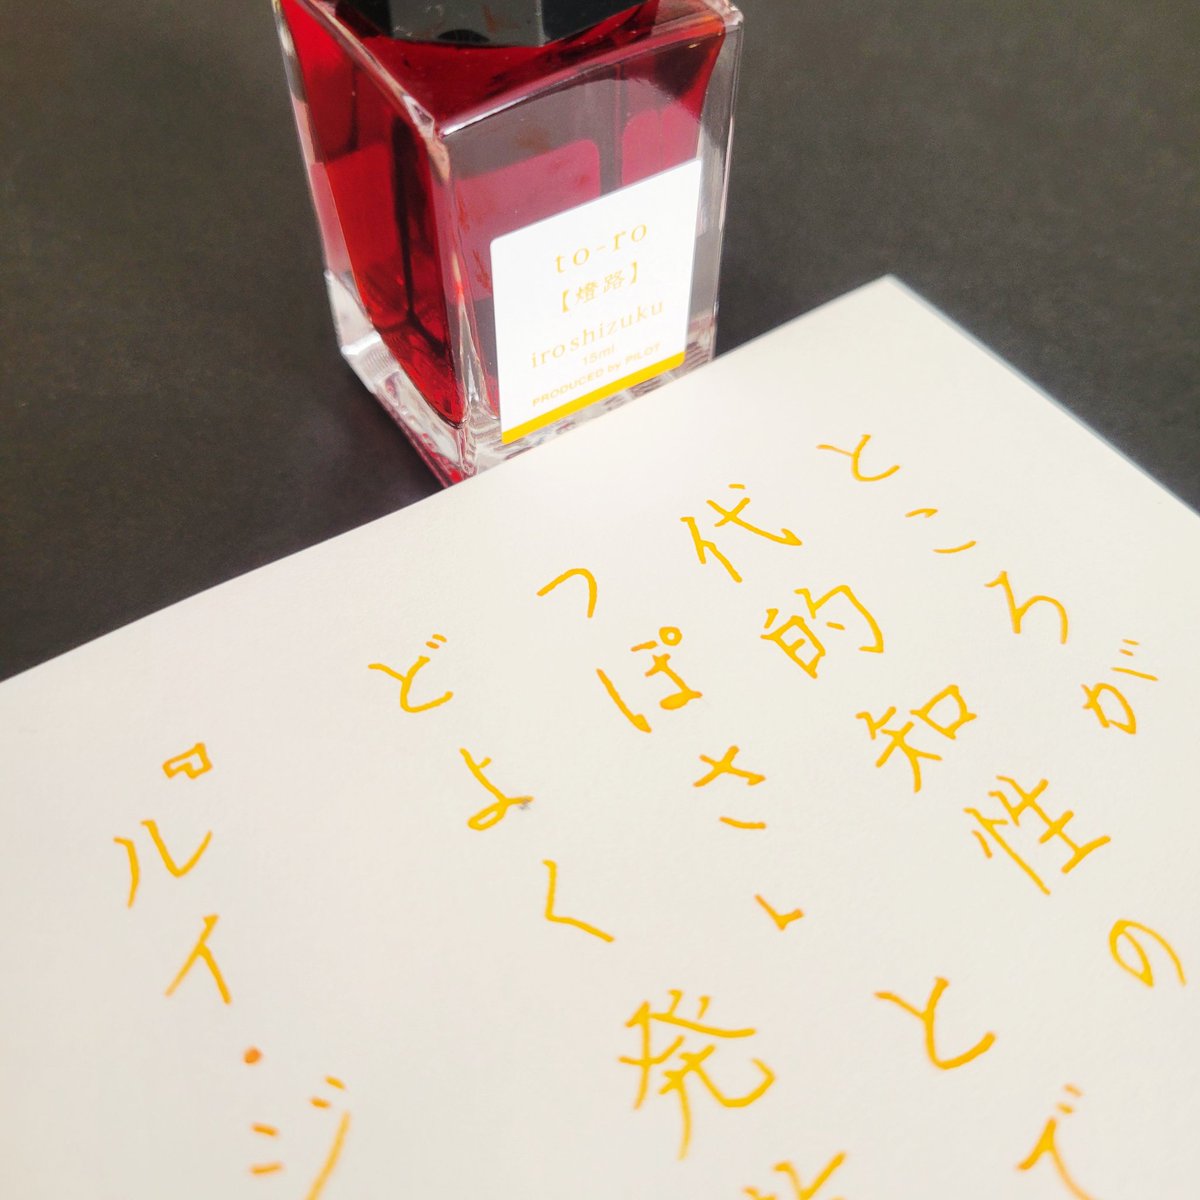 to-ro
【燈路】
iroshizuku
15ml
PRODUCED by PILOT
ところが
代的知性の
っぽさ とで
どよく発
『ルイ・ジ